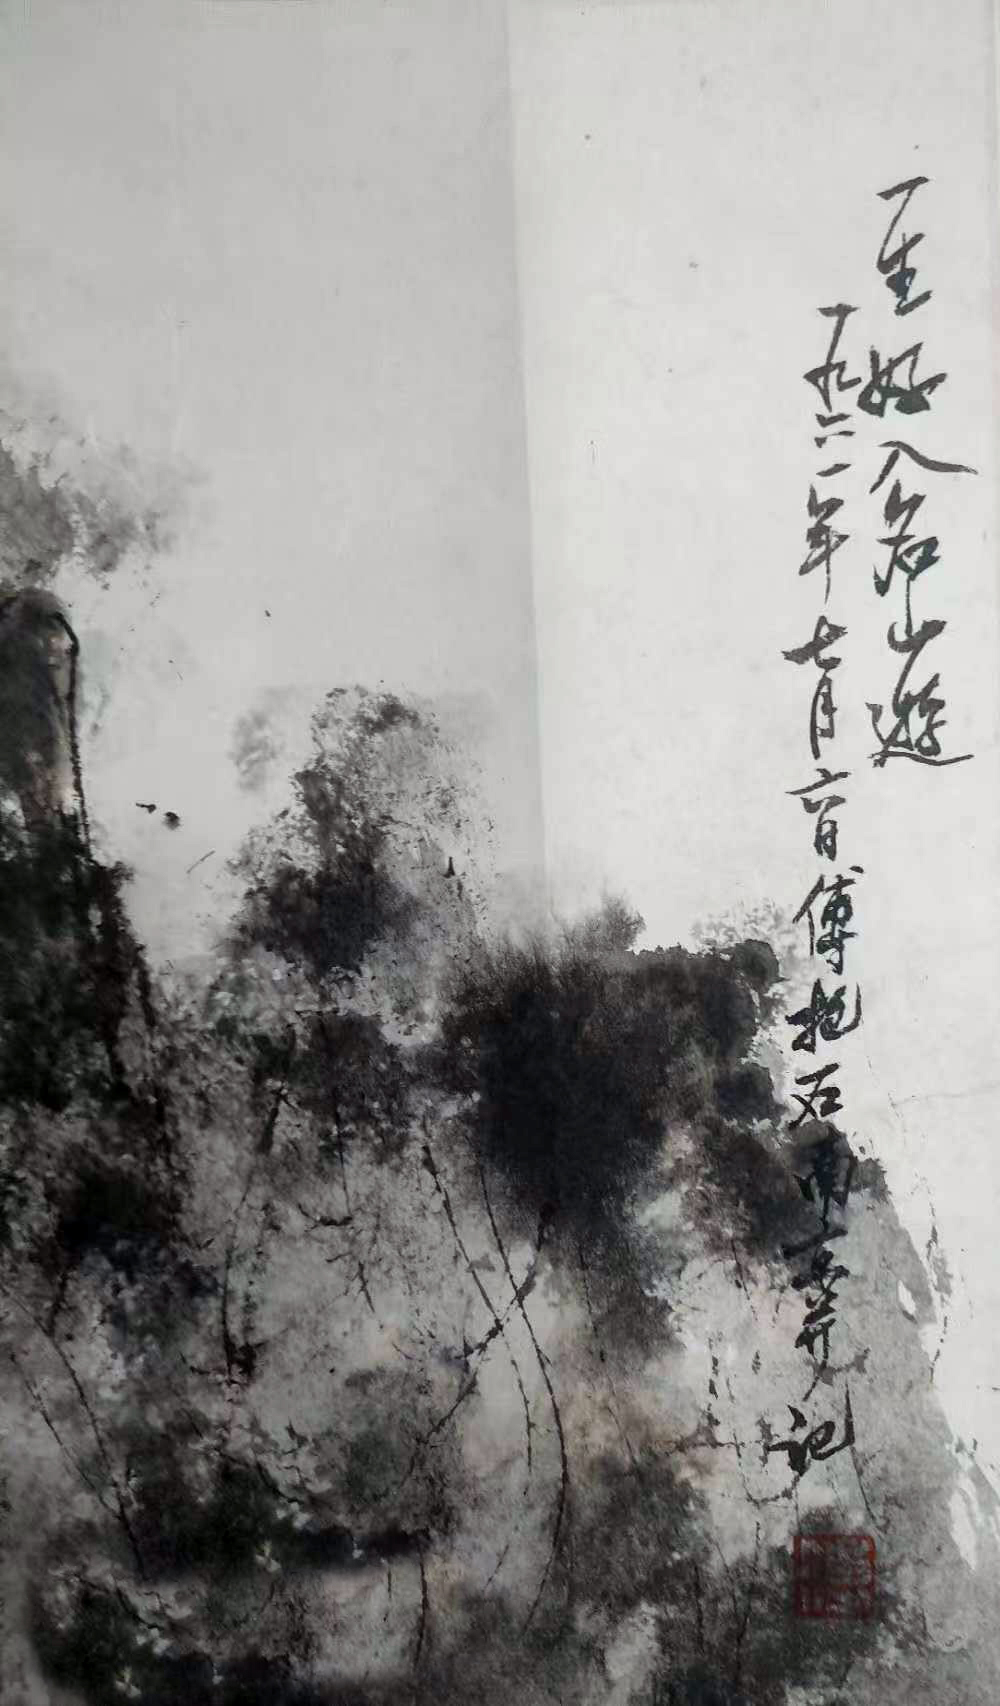 一生好入名山遊
一九六一年七月六日傅抱石南京并记